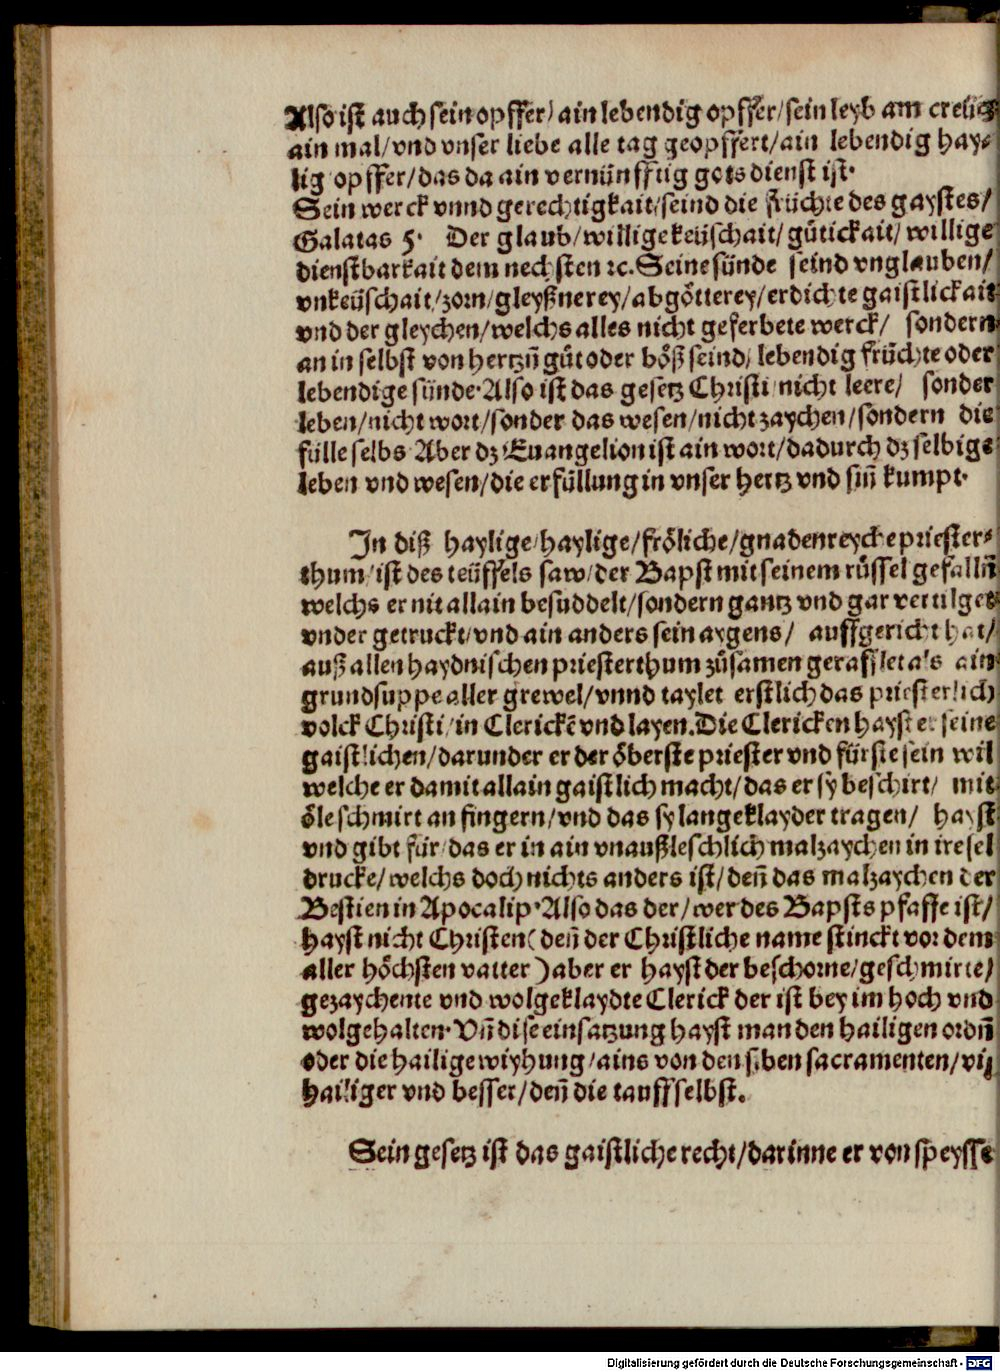 Also ist auch sein opffer/ ain lebendig opffer/ sein leyb am creütz
ain mal/ vnd vnser liebe alle tag geopffert/ ain lebendig hay-
lig opffer/ das da ain vernünfftig gots dienst ist.
Sein werck vnnd gerechtigkait/ seind die früchte des gaystes/
Galatas 5. Der glaub/ willige keüschait/ gütickait/ willige
dienstbarkait dem nechsten ꝛc. Seine sünde seind vnglauben/
vnkeüschait/ zorn/ gleyßnerey/ abgötterey/ erdichte gaistlickait
vnd der gleychen/ welchs alles nicht geferbete werck/ sondern
an in selbst von hertzñ gůt oder böß seind/ lebendig früchte oder
lebendige sünde. Also ist das gesetz Christi nicht leere/ sonder
leben/ nicht wort/ sonder das wesen/ nicht zaychen/ sondern die
fülle selbs Aber dz Euangelion ist ain wort/ dadurch dz selbige
leben vnd wesen/ die erfüllung in vnser hertz vnd siñ kumpt.
In diß haylige/ haylige/ fröliche/ gnadenreyche priester-
thum/ ist des teüffels saw/ der Bapst mit seinem rüssel gefallñ
welchs er nit allain besuddelt/ sondern gantz vnd gar vertilget
vnder getruckt/ vnd ain anders sein aygens/ auffgericht hat/
auß allen haydnischen priesterthum zůsamen gerafflet als ain
grundsuppe aller grewel/ vnnd taylet erstlich das priesterlich
volck Christi/ in Clerickẽ vnd layen. Die Clericken hayst er seine
gaistlichen/ darunder er der öberste priester vnd fürste sein wil
welche er damit allain gaistlich macht/ das er sy beschirt/ mit
öle schmirt an fingern/ vnd das sy lange klayder tragen/ hayst
vnd gibt für/ das er in ain vnaußleschlich malzaychen in ire sel
drucke/ welchs doch nichts anders ist/ deñ das malzaychen der
Bestien in Apocalip. Also das der/ wer des Bapsts pfaffe ist/
hayst nicht Christen (deñ der Christliche name stinckt vor dem
aller höchsten vatter) aber er hayst der beschorne/ geschmirte/
gezaychente vnd wolgeklaydte Clerick der ist bey im hoch vnd
wolgehalten. Vñ dise einsatzung hayst man den hailigen ordñ
oder die hailige wiyhung/ ains von den siben sacramenten/ vil
hailiger vnd besser/ deñ die tauff selbst.
Sein gesetz ist das gaistliche recht/ darinne er von speysse
Digitalisierung gefördert durch die Deutsche Forschungsgemeinschaft - DFG